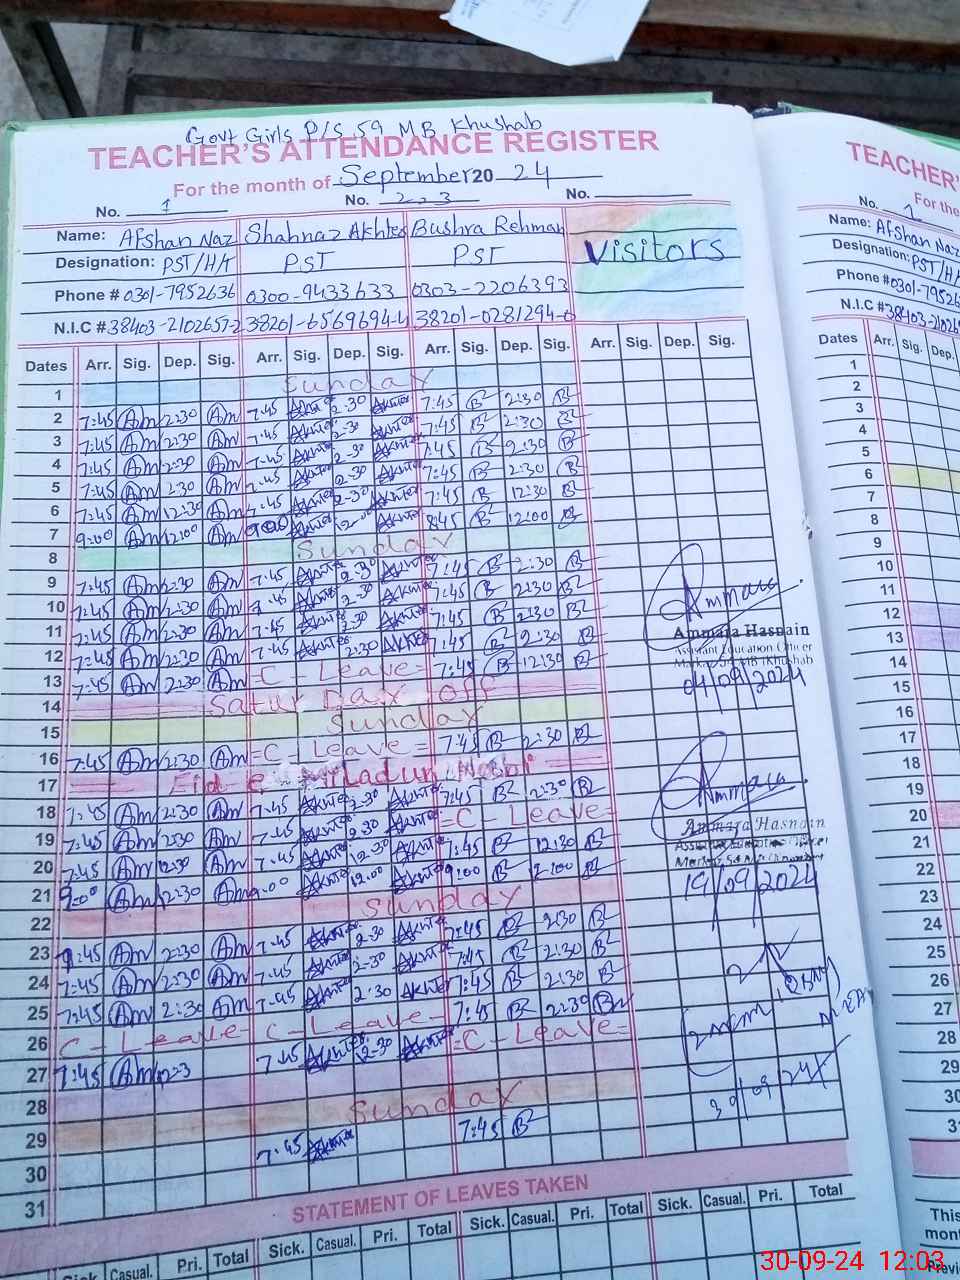 Govt Girls P/S 59 MB Khushab
TEACHER'S ATTENDANCE REGISTER
For the month of September 20 24
No. 1 No. 2-3 No.
Name: Afshan Naz Shahnaz Akhter Bushra Rehman Visitors
Designation: PST/HT PST PST
Phone # 0301-7952636 0300-9433633 0303-2206393
N.I.C # 38403-2102657-2 38201-6569694-4 38201-0281294-6
Dates Arr. Sig. Dep. Sig. Arr. Sig. Dep. Sig. Arr. Sig. Dep. Sig. Arr. Sig. Dep. Sig.
1 Sunday
2 7:45 Am 2:30 Am 7:45 Akhter 2:30 Akhter 7:45 B 2:30 B
3 7:45 Am 2:30 Am 7:45 Akhter 2:30 Akhter 7:45 B 2:30 B
4 7:45 Am 2:30 Am 7:45 Akhter 2:30 Akhter 7:45 B 2:30 B
5 7:45 Am 2:30 Am 7:45 Akhter 2:30 Akhter 7:45 B 2:30 B
6 7:45 Am 12:30 Am 7:45 Akhter 2:30 Akhter 7:45 B 12:30 B
7 9:00 Am 12:00 Am 9:00 Akhter 12:00 Akhter 8:45 B 12:00 B
8 Sunday
9 7:45 Am 2:30 Am 7:45 Akhter 2:30 Akhter 7:45 B 2:30 B
10 7:45 Am 2:30 Am 7:45 Akhter 2:30 Akhter 7:45 B 2:30 B
11 7:45 Am 2:30 Am 7:45 Akhter 2:30 Akhter 7:45 B 2:30 B
12 7:45 Am 2:30 Am 7:45 Akhter 2:30 Akhter 7:45 B 2:30 B
13 7:45 Am 2:30 Am =C-Leave= 7:45 B 12:30 B
14 Satur Day off
15 Sunday
16 7:45 Am 2:30 Am =C-Leave= 7:45 B 2:30 B
17 Eid e Miladun Nabi
18 7:45 Am 2:30 Am 7:45 Akhter 2:30 Akhter 7:45 B 2:30 B
19 7:45 Am 2:30 Am 7:45 Akhter 2:30 Akhter =C-Leave=
20 7:45 Am 12:30 Am 7:45 Akhter 12:30 Akhter 7:45 B 12:30 B
21 9:00 Am 12:30 Am 9:00 Akhter 12:00 Akhter 9:00 B 2:100 B
22 Sunday
23 7:45 Am 2:30 Am 7:45 Akhter 2:30 Akhter 7:45 B 2:30 B
24 7:45 Am 2:30 Am 7:45 Akhter 2:30 Akhter 7:45 B 2:30 B
25 7:45 Am 2:30 Am 7:45 Akhter 2:30 Akhter 7:45 B 2:30 B
26 C-Leave- C-Leave- 7:45 B 2:30 B
27 7:45 Am 12:3 7:45 Akhter 12:30 Akhter =C-Leave=
28
29 Sunday
30 7:45 Akhter 7:45 B
31
Ammara
Ammara Hasnain
Assistant Education Officer
Markaz 54 MB (Khushab
04/09/2024
Ammara
Ammara Hasnain
Assistant Education Officer
Markaz 54 MB (Khushab
19/09/2024
30/09/24
STATEMENT OF LEAVES TAKEN
Sick. Casual. Pri. Total Sick. Casual. Pri. Total Sick. Casual. Pri. Total Sick. Casual. Pri. Total
TEACHER'
For the
No. 2
Name: Afshan Naz
Designation: PST/H
Phone # 0301-7952
N.I.C # 38403-2102
Dates Arr. Sig. Dep.
1
2
3
4
5
6
7
8
9
10
11
12
13
14
15
16
17
18
19
20
21
22
23
24
25
26
27
28
29
30
3
This
mon
Previ
30-09-24 12:03